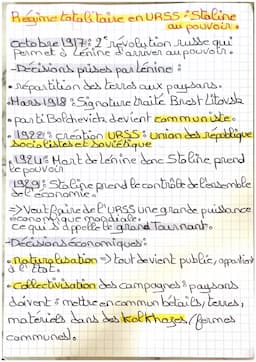 Régime totalitaire en URSS : Staline
au pouvoir.
Octobre 1917 : 2e révolution russe qui
permet à Lénine d'arriver au pouvoir.
- Décisions prises par Lénine :
• répartition des terres aux paysans.
• Mars 1918 : Signature traité Brest Litovsk
• parti Bolchevick devient communiste.
• 1922 : création URSS : Union des république
socialistes et soviétique
• 1924 : Mort de Lénine donc Staline prend
le pouvoir
1929 : Staline prend le contrôle de l'ensemble
de l'économie.
=> Veut faire de l'URSS une grande puissance
économique mondiale.
ce qui s'appelle le grand Tournant.
- Décisions économiques :
• nationalisation => tout devient public, appartient
à l'État.
• collectivisation des campagnes : paysans
doivent : mettre en commun bétails, terres,
matériels dans des Kolkhozes (fermes
communes).